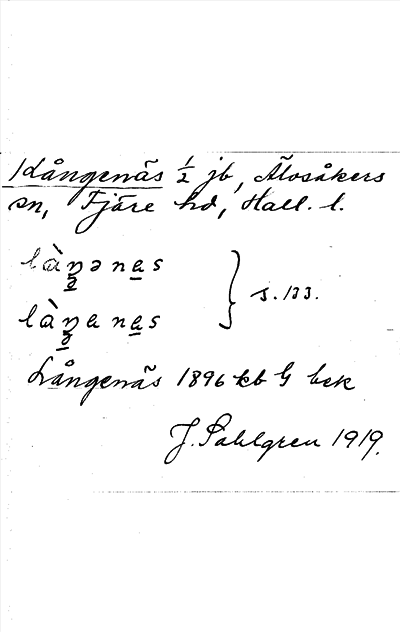 Långenäs ½ jb, Älvsåkers
sn, Fjäre hd, Hall. l.
làŋənas
làŋanas } s. 133.
Långenäs 1896 kb G bek
J. Sahlgren 1919.